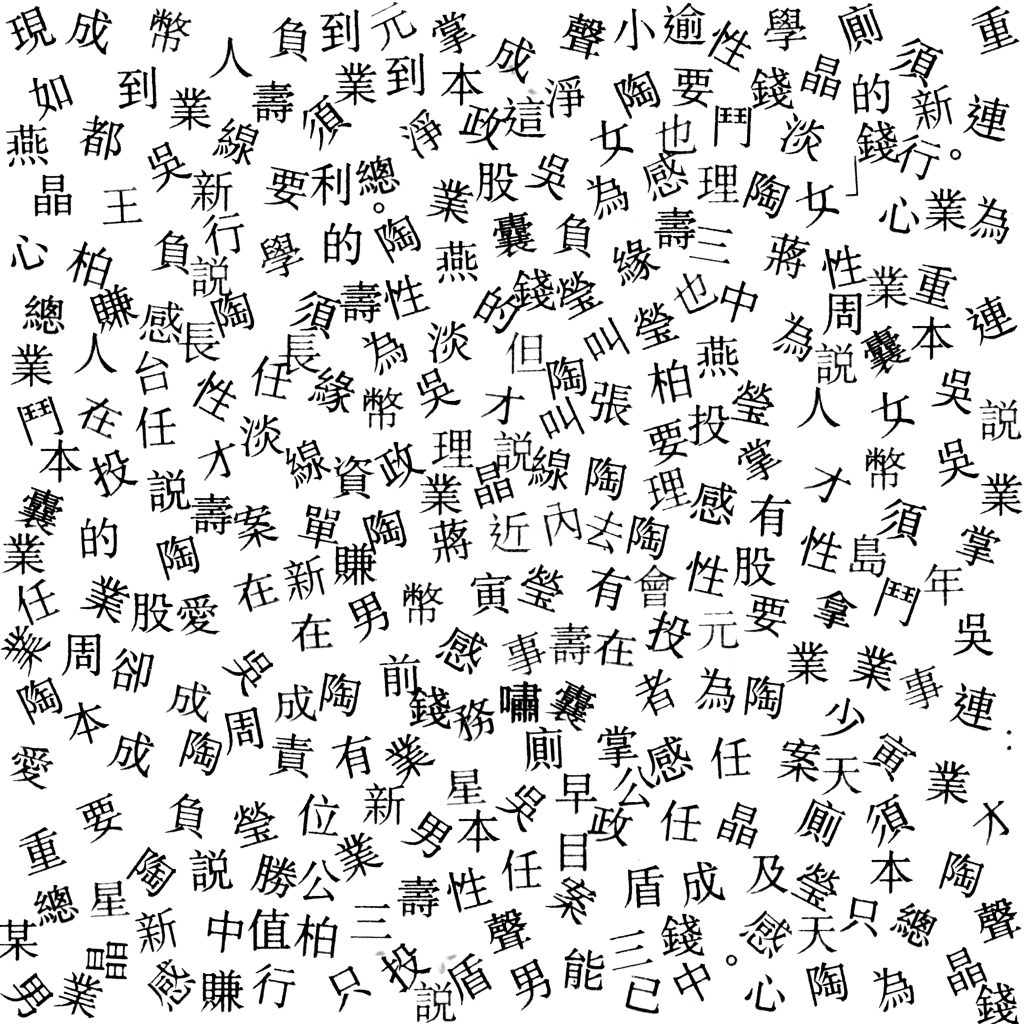 現成幣人負到元掌成聲小逾性學廁須重
如到業壽須業到本淨陶要錢晶的新連
燕都吳線淨政這女也鬥淡」錢行。
晶王新要利總。業股吳為感理陶女心業為
心柏負行說學的陶燕囊負緣壽三蔣性業重
總賺感長陶須壽性的錢瑩瑩也中為周囊本連
業人台任長緣為淡但陶叫柏燕說吳
鬥在任性淡幣吳才叫張要投瑩人女說
本投說才線資政理說線陶理感掌才幣吳業
囊的壽案單陶業晶蔣近內去陶有性島須掌
業陶在新賺寅瑩有會性股拿鬥年
任業股愛在男幣感事壽在投元要業業事吳
業周卻吳成陶前錢務嘯囊者為陶少連：
陶本成周責有業廁掌感任案天寅業
愛成陶新星吳早公任晶廁須才
重要負瑩位業男本政目盾成及瑩本陶
總星陶說勝公壽性任案錢感天只總聲
某晶新中值柏三聲三。晶
男業感賺行只投說盾男能已中心陶為錢